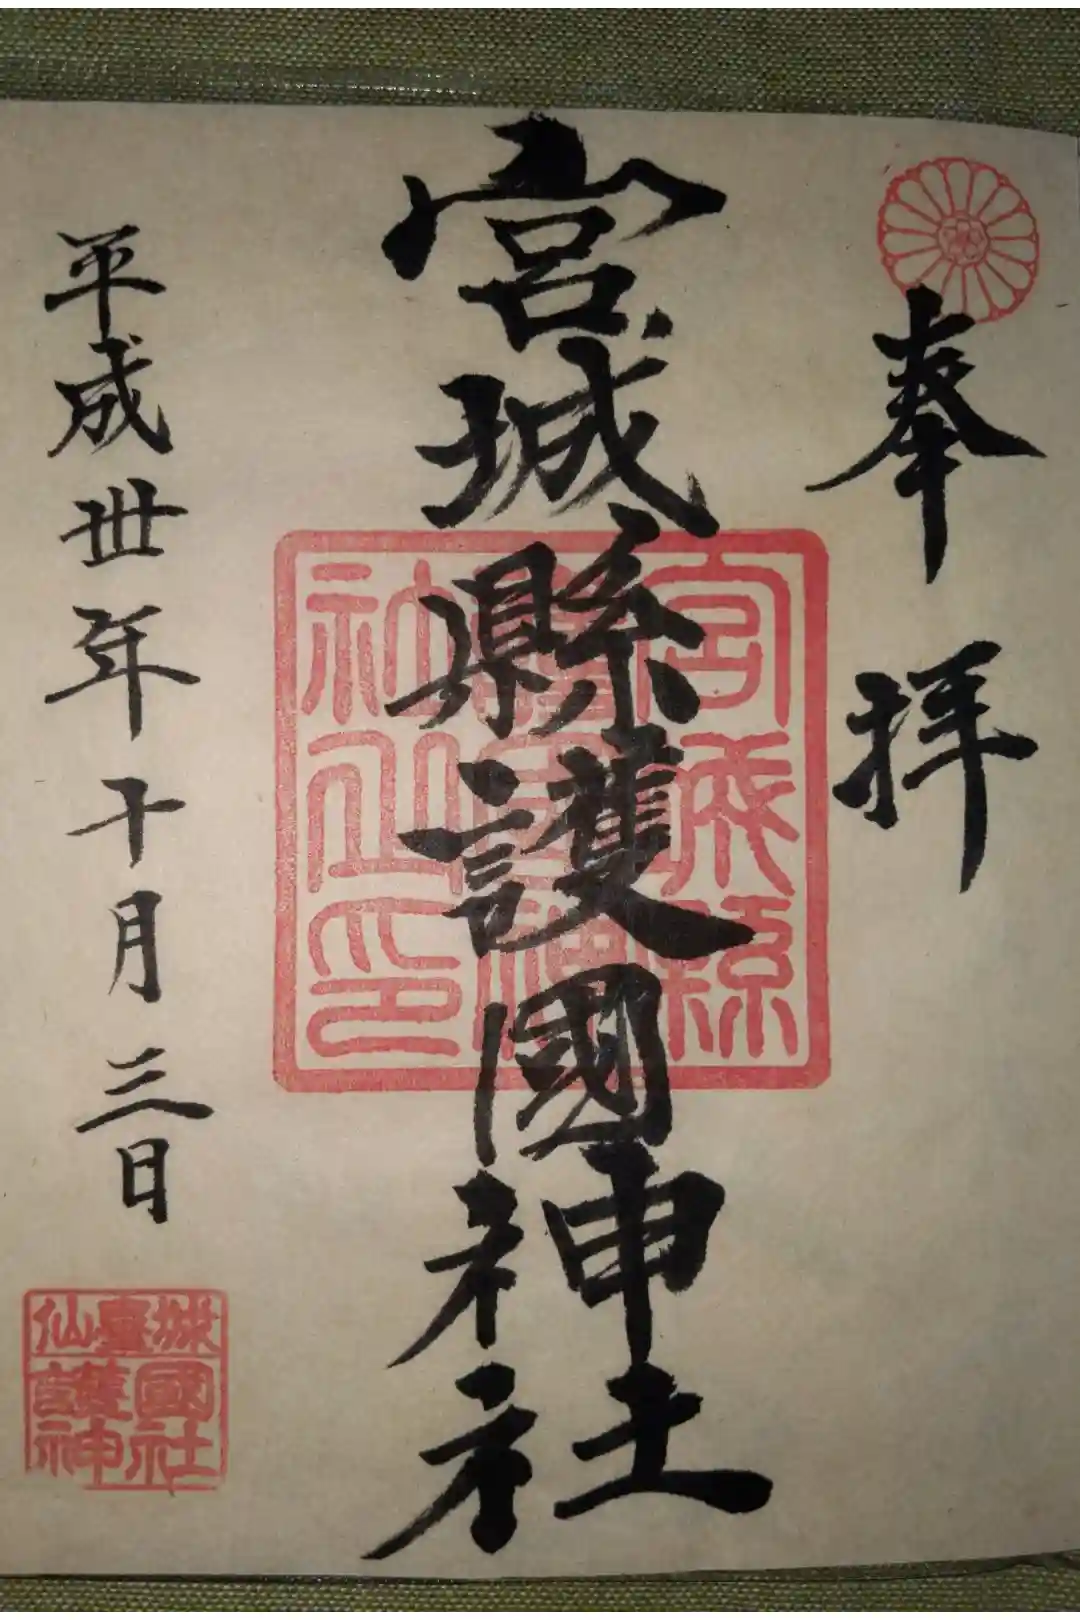 奉拝
宮城縣護國神社
宮城縣護國神社之印
平成丗年十月三日
仙臺城
護國神社